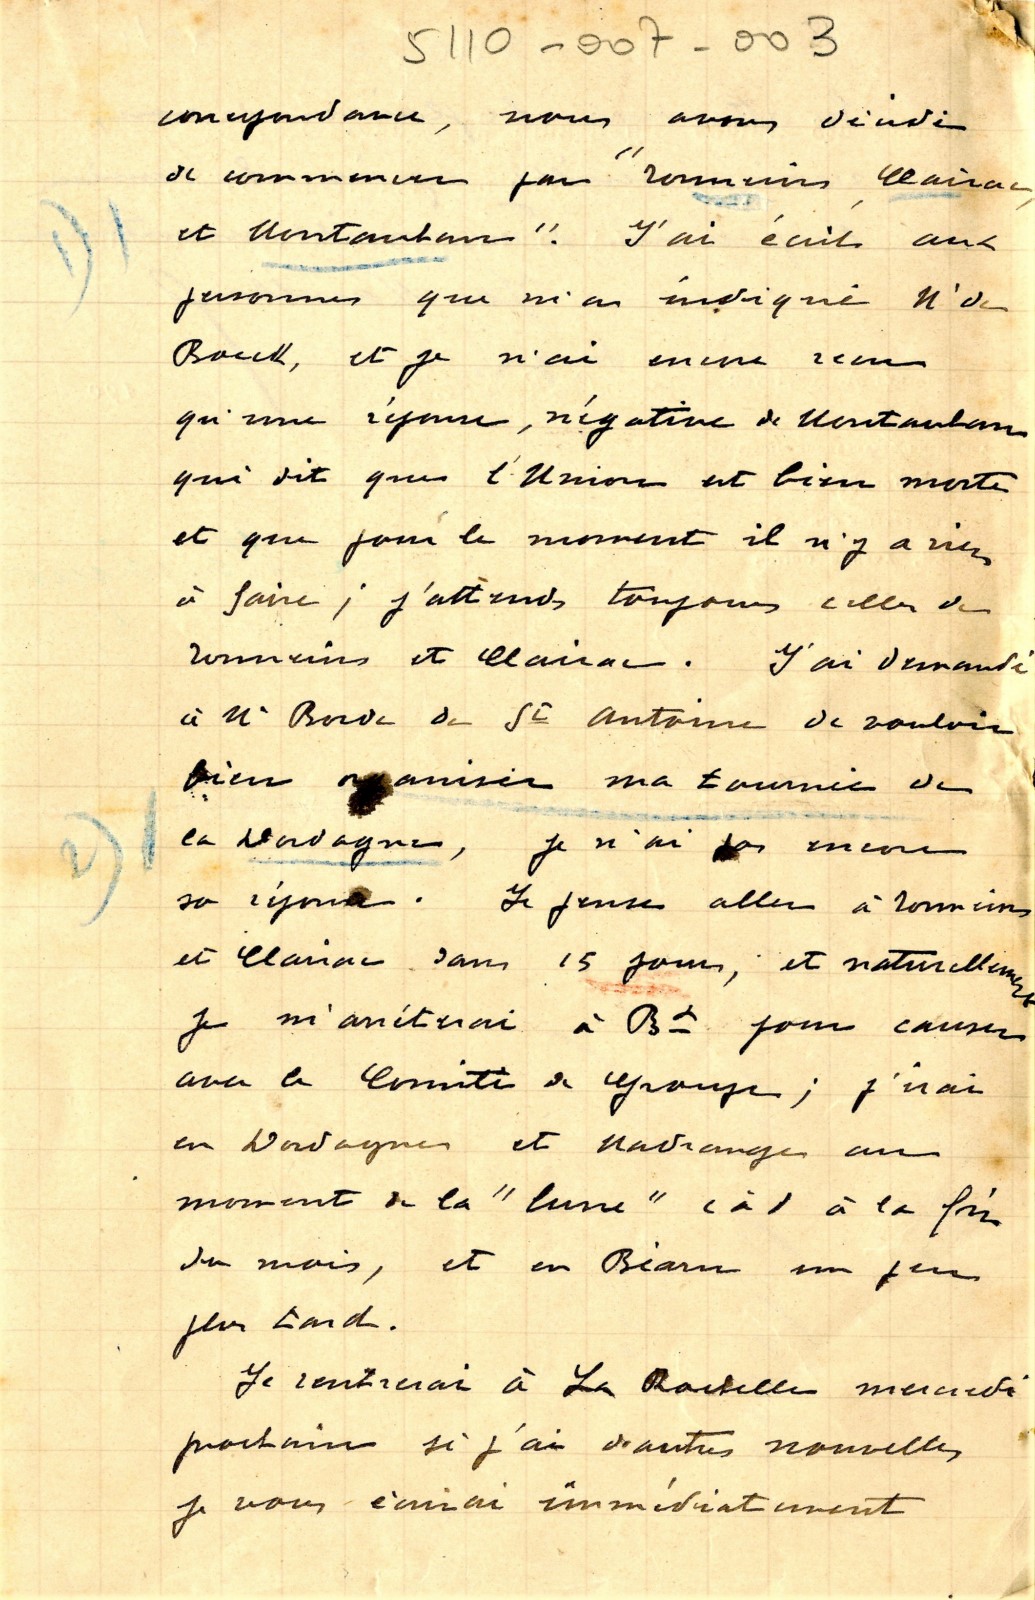 5110-007-003
correspondance, nous avons décidé
de commencer par "Tonneins, Clairac,
1) et Montauban". J'ai écrit aux
personnes que m'a indiqué Mr de
Boeck, et je n'ai encore recu
qu'une réponse, négative de Montauban
qui dit que l'Union est bien morte
et que pour le moment il n'y a rien
à faire ; j'attends toujours celles de
Tonneins et Clairac. J'ai demandé
à Mr Borde de St Antoine de vouloir
bien organiser ma tournée de
2) la Dordogne, je n'ai pas encore
sa réponse. Je pense aller à Tonneins
et Clairac dans 15 jours, et naturellement
je m'arrêterai à Bx pour causer
avec le Comité de Groupe ; j'irai
en Dordogne et Madranges au
moment de la "lune" c à d à la fin
du mois, et en Béarn un peu
plus tard.
Je rentrerai à La Rochelle mercredi
prochain si j'ai d'autres nouvelles
je vous écrirai immédiatement